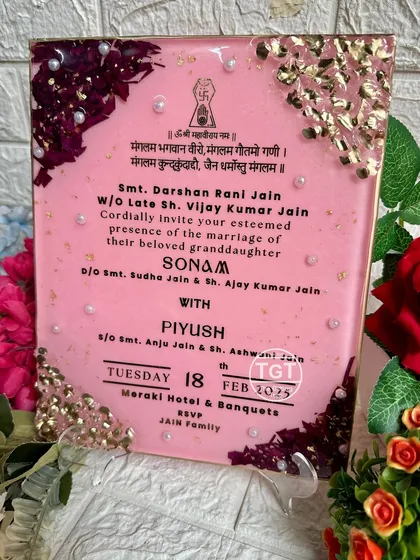 ॥ ॐ श्री महावीराय नमः ॥
मंगलम भगवान वीरो, मंगलम गौतमो गणी ।
मंगलम कुन्दकुंदाद्दौ, जैन धर्मोस्तु मंगलम ॥
Smt. Darshan Rani Jain
W/o Late Sh. Vijay Kumar Jain
Cordially invite your esteemed
presence of the marriage of
their beloved granddaughter
SONAM
D/o Smt. Sudha Jain & Sh. Ajay Kumar Jain
WITH
PIYUSH
S/o Smt. Anju Jain & Sh. Ashwani Jain
TUESDAY 18th FEB 2025
TGT
Meraki Hotel & Banquets
RSVP
JAIN Family